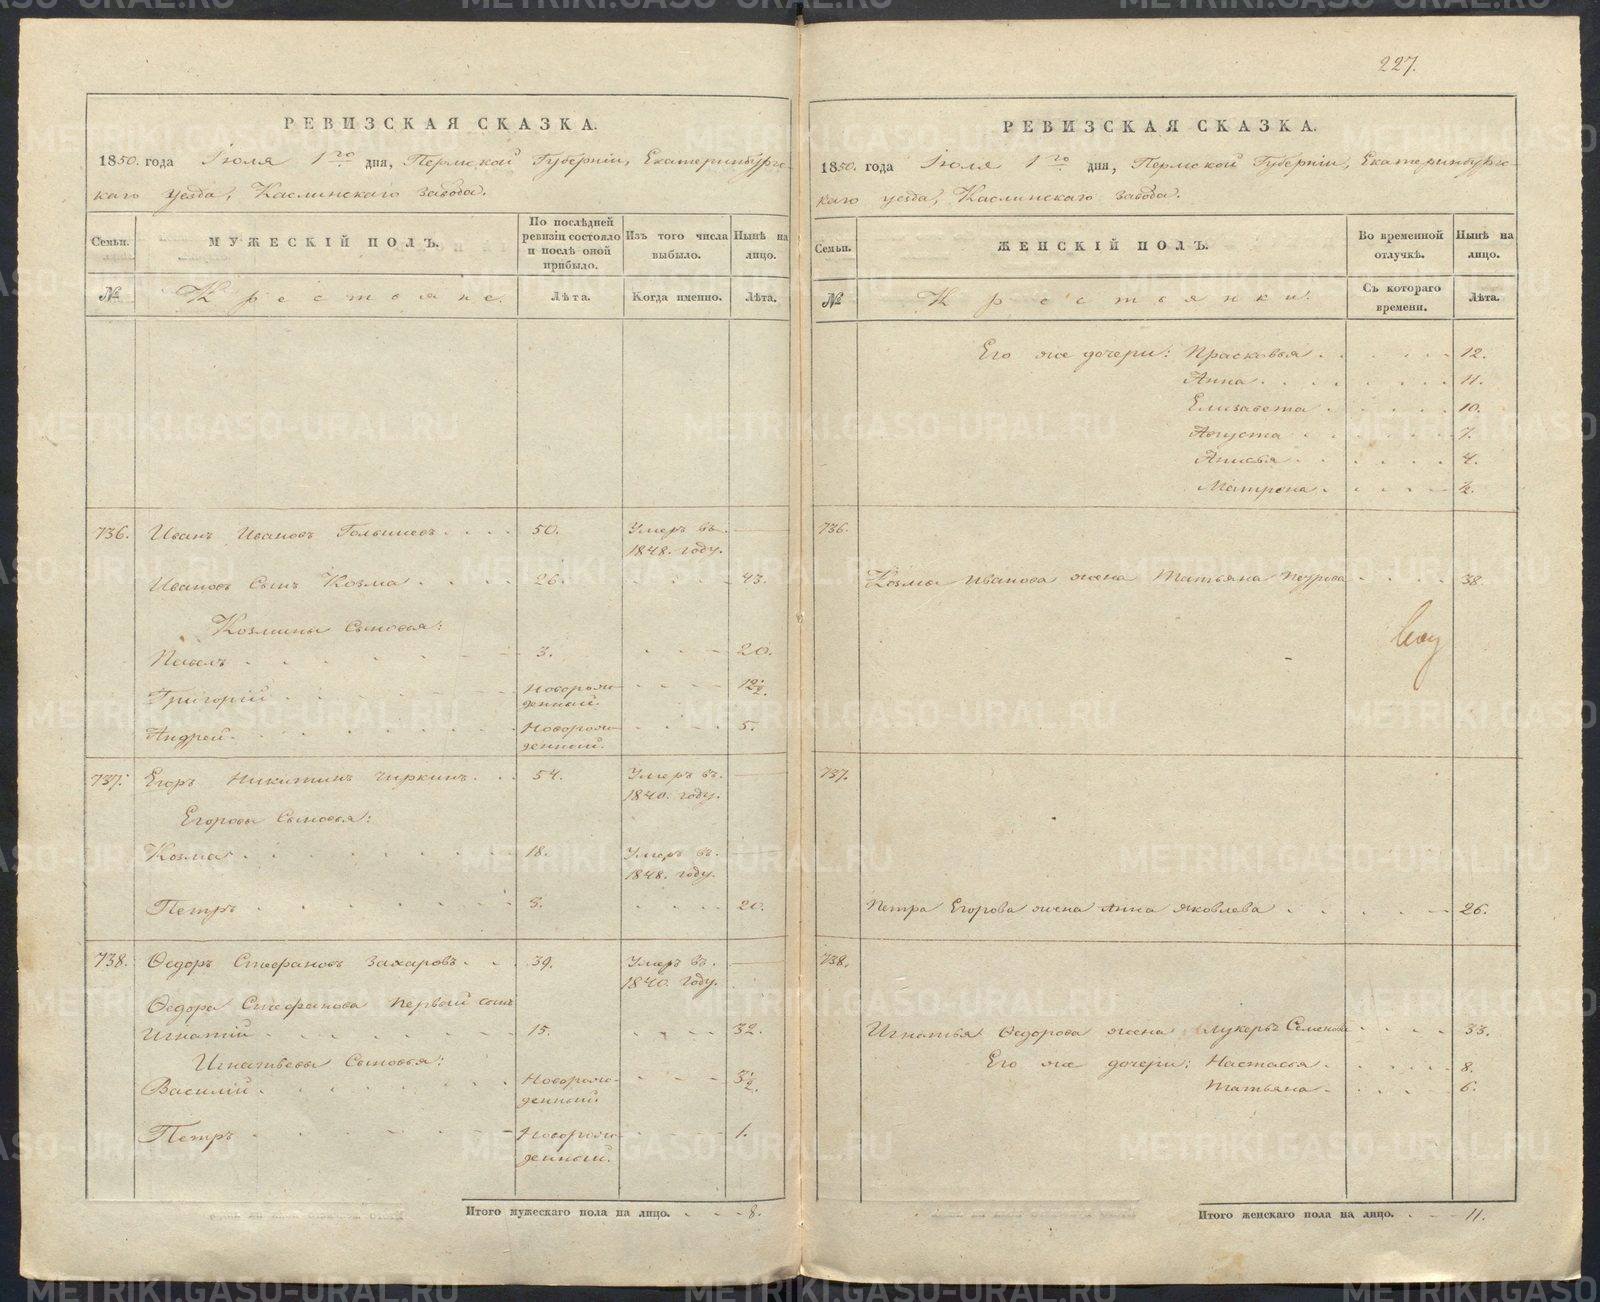 227.
РЕВИЗСКАЯ СКАЗКА.
1850. года Іюля 1го дня, Пермской Губерніи, Екатеринбургс-
каго уезда, Каслинскаго завода.
Семьи.
МУЖЕСКІЙ ПОЛЪ.
По послѣдней ревизіи состояло и послѣ оной прибыло.
Изъ того числа выбыло.
Нынѣ на лицо.
№
Крестьяне.
Лѣта.
Когда именно.
Лѣта.
736. Иванъ Ивановъ 50. Умеръ въ
1848. году.
Ивановъ Сынъ Козма 26. 43.
Козмины Сыновья:
Павелъ 3. 20.
Григорій Новорож- 12½.
денный.
Андрей Новорож- 5.
денный.
737. Егоръ Никитинъ Чиркинъ 54. Умеръ въ
1840. году.
Егоровы Сыновья:
Козма 18. Умеръ въ
1848. году.
Петръ 8. 20.
738. Ѳедоръ Стефановъ Захаровъ 39. Умеръ въ
1840. году.
Ѳедора Стефанова первый сынъ
Игнатій 15. 32.
Игнатьевы Сыновья:
Василій Новорож- 3½.
денный.
Петръ Новорож- 1.
денный.
Итого мужескаго пола на лицо. 8.
РЕВИЗСКАЯ СКАЗКА.
1850. года Іюля 1го дня, Пермской Губерніи, Екатеринбургс-
каго уезда, Каслинскаго завода.
Семьи.
ЖЕНСКІЙ ПОЛЪ.
Во временной отлучкѣ.
Нынѣ на лицо.
№
Крестьянки.
Съ котораго времени.
Лѣта.
Его же дочери: Прасковья 12.
Анна 11.
Елизавета 10.
Августа 7.
Анисья 4.
Матрена ½.
736.
Козмы Иванова жена Татьяна Петрова 38.
737.
Петра Егорова жена Анна Яковлева 26.
738.
Игнатья Ѳедорова жена Лукерья Семенова 33.
Его же дочери: Настасья 8.
Татьяна 6.
Итого женскаго пола на лицо. 11.
METRIKI.GASO-URAL.RU